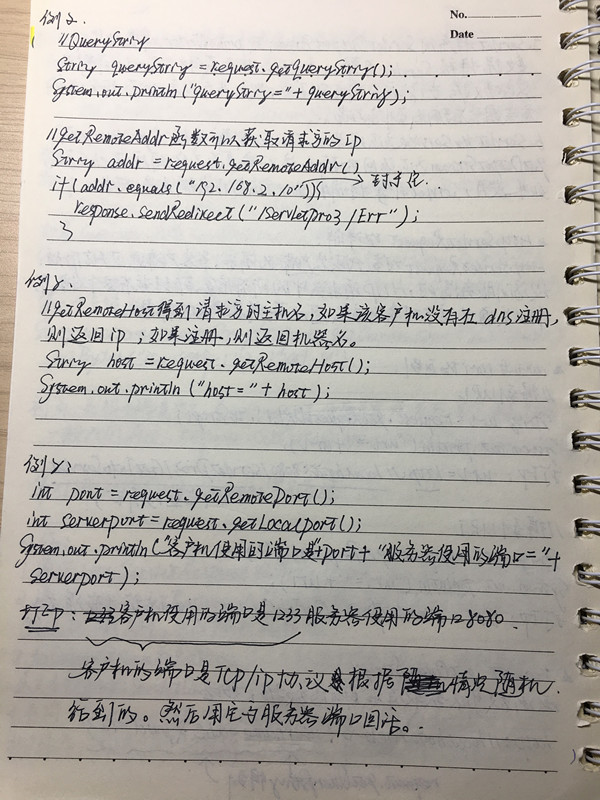 No.
Date
例2.
//QueryString
String queryString = request.getQueryString();
System.out.println("queryString=" + queryString);
//getRemoteAddr函数可以获取请求方的IP
String addr = request.getRemoteAddr()
if(addr.equals("192.168.2.10")){ → 封手住.
response.sendRedirect("/Servletpro3/Err");
}
例3.
//getRemoteHost得到请求方的主机名,如果该客户机没有在dns注册,
则返回ip;如果注册,则返回机器名。
String host = request.getRemoteHost();
System.out.println("host=" + host);
例4:
int port = request.getRemotePort();
int serverport = request.getLocalport();
System.out.println("客户机使用的端口是"+port+"服务器使用的端口="+
serverport);
打印:客户机使用的端口是1233服务器使用的端口28080.
客户机的端口是Tcp/ip协议根据情况随机
给到的。然后用它与服务器端口回话..